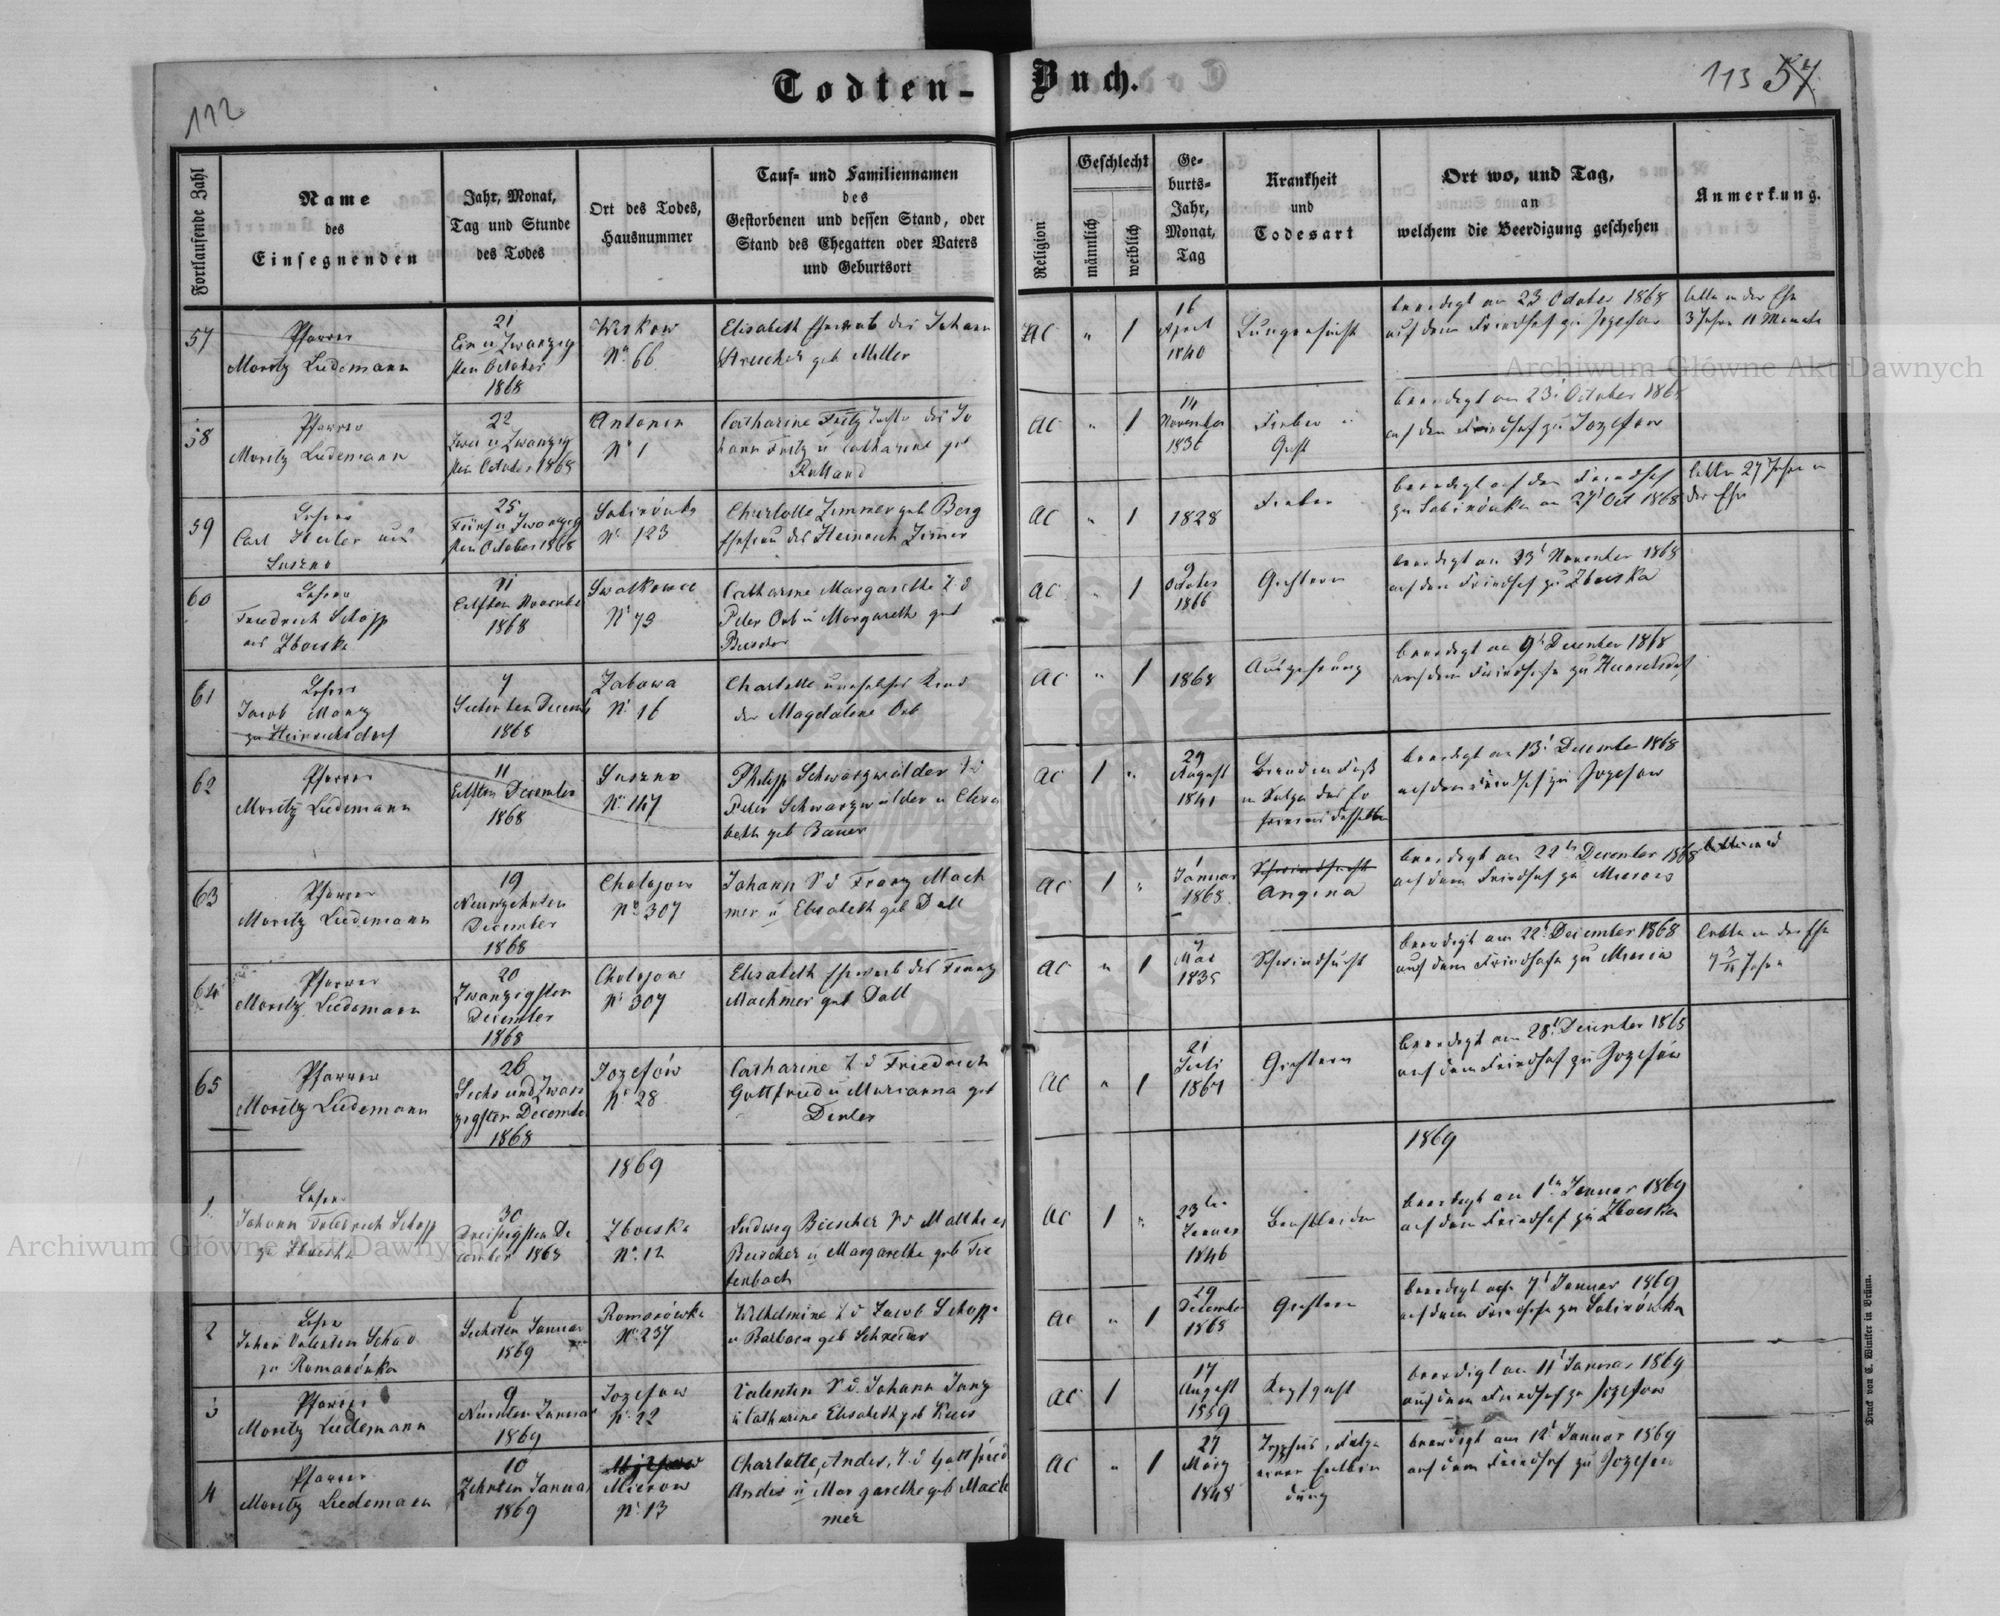 112
Todten-Buch.
113 57
Fortlaufende Zahl
Name
des
Einsegnenden
Jahr, Monat,
Tag und Stunde
des Todes
Ort des Todes,
Hausnummer
Tauf- und Familiennamen
des
Gestorbenen und dessen Stand, oder
Stand des Ehegatten oder Vaters
und Geburtsort
Religion
Geschlecht
männlich
weiblich
Ge-
burts-
Jahr,
Monat,
Tag
Krankheit
und
Todesart
Ort wo, und Tag,
an
welchem die Beerdigung geschehen
Anmerkung.
57
Pfarrer
Moritz Ludemann
21
Ein u Zwanzig
sten October
1868
No 66
Elisabeth Eheweib des Johann
geb Miller
AC " 1
16
April
1840
Lungensucht
beerdigt am 23 October 1868
auf dem Friedhof zu Jozefow
lebte in der Ehe
3 Jahre 11 Monate
58
Pfarrer
Moritz Ludemann
22
Zwei u Zwanzig
sten October 1868
Antonin
No 1
Catharine Fritz Tochter des Jo
hann Fritz u Catharine geb
AC " 1
14
November
1836
beerdigt am 23t October 1868
auf dem Friedhof zu Jozefow
59
Lehrer
Carl aus
Suszno
25
Fünf u Zwanzig
sten October 1868
Sabinówka
No 123
Charlotte Zimmer geb Berg
Ehefrau des Heinrich Zimmer
AC " 1
1828
Fieber
beerdigt auf dem Friedhof
zu Sabinówka am 27t Oct 1868
lebte 27 Jahre in
der Ehe
60
Lehrer
Friedrich Schopp
aus Zboiska
11
Eilften November
1868
No 79
Catharine Margarethe T d
Peter Orb u Margareth geb
Buscher
AC " 1
9
October
1866
Gichtern
beerdigt am 13t November 1868
auf dem Friedhof zu Zboiska
61
Lehrer
Jacob Manz
zu Heinrichsdorf
7
Siebenten Decemb
1868
Zabawa
No 16
Charlotte uneheliches Kind
der Magdalene Orb
AC " 1
1868
Auszehrung
beerdigt am 9t December 1868
auf dem Friedhofe zu Heinrichsdorf
62
Pfarrer
Moritz Ludemann
11
Eilften December
1868
Suszno
No 147
Philipp Schwarzwälder S d
Peter Schwarzwälder u Elisa
beth geb Bauer
AC 1 "
29
August
1841
Brand im Fuß
in Folge des Er
frierens desselben
beerdigt am 13t December 1868
auf dem Friedhof zu Jozefow
63
Pfarrer
Moritz Ludemann
19
Neunzehnten
December
1868
Cholojow
No 307
Johann S d Franz Mach
mer u Elisabeth geb Dall
AC 1 "
1
Januar
1868
Schwindsucht
Angina
beerdigt am 22te December 1868
auf dem Friedhof zu Mierow
64
Pfarrer
Moritz Ludemann
20
Zwanzigsten
December
1868
Cholojow
No 307
Elisabeth Eheweib des Franz
Machmer geb Dall
AC " 1
7
Mai
1835
Schwindsucht
beerdigt am 22t December 1868
auf dem Friedhofe zu Mierow
lebte in der Ehe
65
Pfarrer
Moritz Ludemann
26
Sechs und Zwan
zigsten December
1868
Jozefów
No 28
Catharine T d Friedrich
Gottfried u Marianna geb
Denler
AC " 1
21
Juli
1867
Gichtern
beerdigt am 28t December 1868
auf dem Friedhof zu Jozefów
1869
1869
1
Lehrer
Johann Friedrich Schopp
zu Zboiska
30
Dreisigsten De
cember 1868
Zboiska
No 12
Ludwig Buscher S d Mathias
Buscher u Margarethe geb
AC 1 "
23ten
Januar
1846
Brustleiden
beerdigt am 1ten Januar 1869
auf dem Friedhof zu Zboiska
2
Lehrer
Johan Valentin Schad
zu Romanówka
6
Sechsten Januar
1869
Romanówka
No 237
Wilhelmine T d Jacob Schopp
u Barbara geb Schneider
AC " 1
29
December
1868
Gichtern
beerdigt am 7t Januar 1869
auf dem Friedhofe zu Sabinówka
3
Pfarrer
Moritz Ludemann
9
Neunten Januar
1869
Jozefow
No 22
Valentin S d Johann Jung
u Catharine Elisabeth geb
AC 1
17
August
1859
beerdigt am 11t Januar 1869
auf dem Friedhof zu Jozefow
4
Pfarrer
Moritz Ludemann
10
Zehnten Januar
1869
Mierow
No 13
Charlotte, Andes, T d Gottfried
Andes u Margarethe geb Mach
mer
AC " 1
27
März
1848
Typhus, Folge
einer Entbin
dung
beerdigt am 12t Januar 1869
auf dem Friedhof zu Jozefow
Druck von C. Winiker in Brünn.
Archiwum Główne Akt Dawnych
Archiwum Główne Akt Dawnych